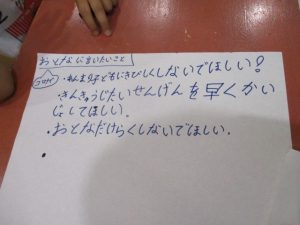 おとなに言いたいこと
・子どもにきびしくしないでほしい!
・きんきゅうじたいせんげんを早くかい
じょしてほしい。
・おとなだけらくしないでほしい.
・